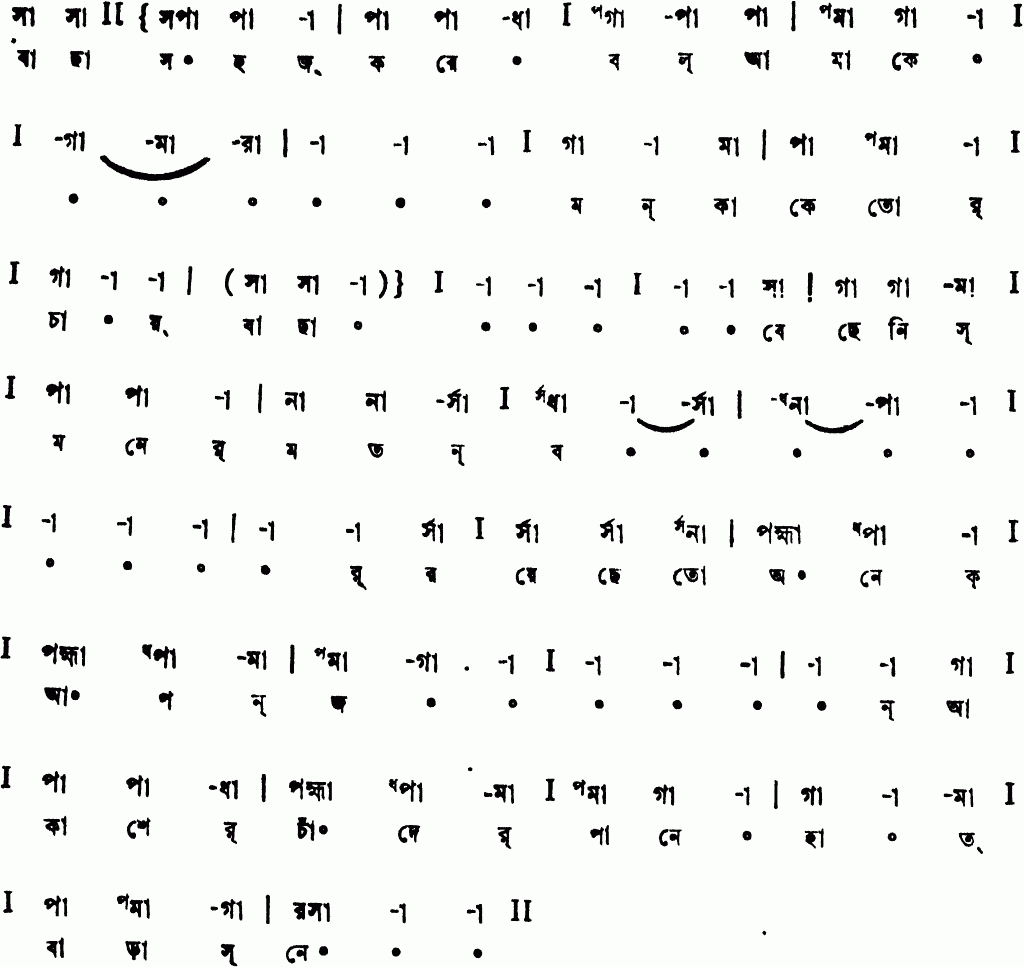 সা সা II { সপা পা -া | পা পা -ধা I ᵖগা -পা পা | ᵖমা গা -া I
বা ছা স • হ জ্ ক রে • ব ল্ আ মা কে •
I -গা -মা -রা | -া -া -া I গা -া মা | পা ᵖমা -া I
• • • • • • ম ন্ কা কে তো র্
I গা -া -া | ( সা সা -া ) } I -া -া -া I -া -া সা | গা গা -মা I
চা • য়্ বা ছা • • • • • • বে ছে নি স্
I পা পা -া | না না -র্সা I র্সধা -া -র্সা | -ধনা -পা -া I
ম নে র্ ম ত ন্ ব • • • • •
I -া -া -া | -া -া র্সা I র্সা র্সা র্সনা | পহ্মা ধপা -া I
• • • • র্ র য়ে ছে তো অ • নে ক্
I পহ্মা ধপা -মা | পমা -গা -া I -া -া -া | -া -া গা I
আ • প ন্ জ • • • • • • ন্ আ
I পা পা -ধা | পহ্মা ধপা -মা I পমা গা -া | গা -া -মা I
কা শে র্ চাঁ • দে র্ পা নে • হা • ত্
I পা পমা -গা | রসা -া -া II
বা ড়া স্ নে • • •